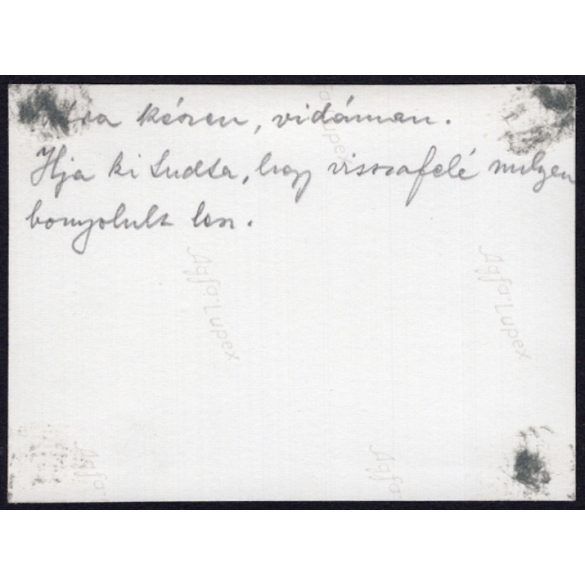 készen, vidáman.
Hja ki tudta, hogy visszafelé milyen
bonyolult lesz.
Agfa-Lupex
Agfa-Lupex
Agfa-Lupex
Agfa
Agfa